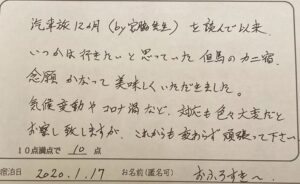 汽車旅12ヵ月(by宮脇先生)を読んで以来、
いつかは行きたいと思っていた但馬のカニ宿、
念願かなって美味しくいただきました。
気候変動やコロナ渦など、対応も色々大変だと
お察し致しますが、これからも変わらず頑張って下さい
10点満点で 10 点
宿泊日 2020.1.17 お名前(匿名可) おふろすき〜